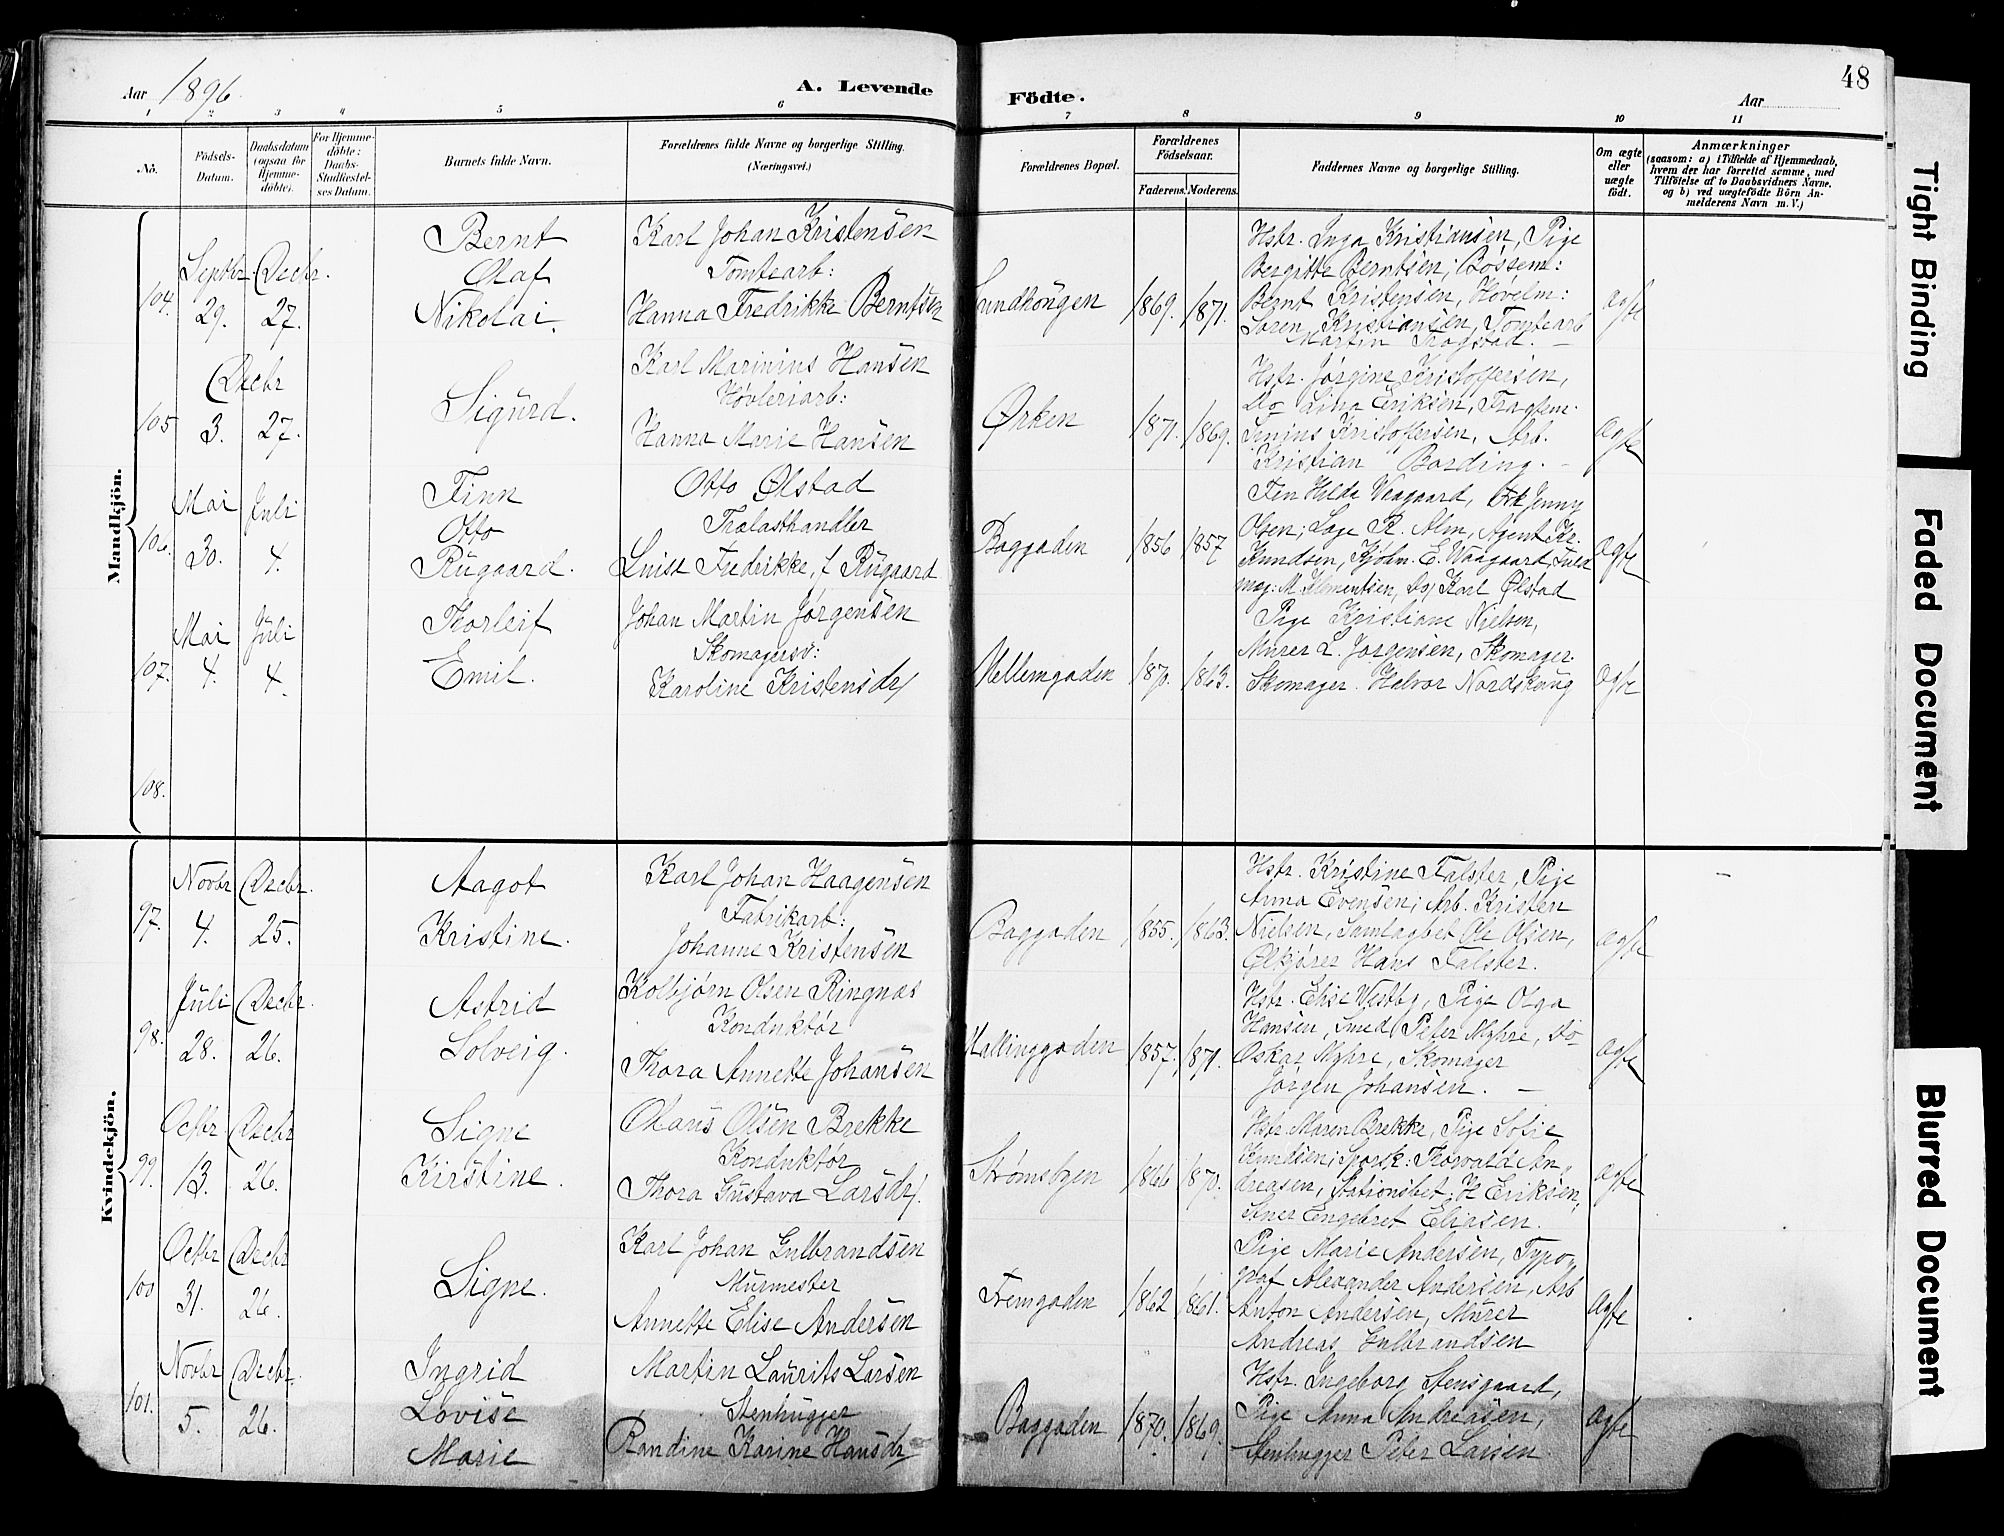 Aar 1896.
A. Levende
Födte.
Aar
48
1 2 3 4 5 6 7 8 9 10 11
No.
Födsels-
Datum.
Daabsdatum
(ogsaa for
Hjemme-
döbte).
For Hjemme-
döbte:
Daabs-
Stadfæstel-
ses Datum.
Barnets fulde Navn.
Forældrenes fulde Navne og borgerlige Stilling.
(Næringsvei.)
Forældrenes Bopæl.
Forældrenes
Födselsaar.
Faderens. Moderens.
Faddernes Navne og borgerlige Stilling.
Om ægte
eller
uægte
födt.
Anmærkninger
(saasom: a) i Tilfælde af Hjemmedaab,
hvem der har forrettet samme, med
Tilföielse af to Daabsvidners Navne,
og b) ved uægtefödte Börn An-
melderens Navn m. V.)
Mandkjön.
104.
Septbr.
29.
Decbr.
27.
Bernt
Olaf
Nikolai.
Karl Johan Kristensen
Tomtearb:
Hanna Fredrikke Berntsen
Sundhaugen
1869. 1871.
Hstr. Inga Kristiansen, Pige
Bergitte Berntsen; Bossem:
Bernt Kristensen, Høvelm:
Søren Kristiansen, Tomtearb
Martin Trogstad. —
ægte
105
Decbr
3. 27.
Sigurd.
Karl Marinius Hansen
Høvleriarb:
Hanna Marie Hansen
Ørken
1871. 1869.
Hstr. Jørgine Kristoffersen,
Do Lina Eriksen, Fragtem.
Kristoffersen, Arb.
Kristian Bording. —
ægte
106.
Mai
30.
Juli
4.
Finn
Otto
Rugaard.
Otto Ølstad
Trælasthandler
Luise Fredrikke, f Rugaard
Baggaden
1856 1857
Frn Hilda Waagaard, Frk Jenny
Olsen; Lage R. Alm, Agent Kr.
Knudsen, Kjøbm. E. Waagaard, Fuld
mæg: M Klementsen, Do/ Karl Ølstad
ægte
107.
Mai
4.
Juli
4.
Thorleif
Emil.
Johan Martin Jørgensen
Skomagersv:
Karoline Kristensdr/
Mellemgaden
1870. 1863.
Pige Kristiane Nielsen,
Murer L. Jørgensen, Skomager.
Skomager. Halvor Nordskaug
ægte
108.
Kvindekjön.
97.
Novbr
4.
Decbr.
25.
Aagot
Kristine.
Karl Johan Haagensen
Fabrikarb:
Johanne Kristensen
Baggaden
1855. 1863.
Hstr. Kristine Falster, Pige
Anna Evensen; Arb. Kristen
Nielsen, Samlagbet Ole Olsen,
Ølkjører Hans Falster.
ægte
98.
Juli
28.
Decbr.
26.
Astrid
Solveig.
Kolbjørn Olsen Ringnæs
Konduktør
Thora Annette Johansen
Hallinggaden
1857. 1871.
Hstr. Elise Westby, Pige Olga
Hansen, Smed Peter Myhre, Do
Oskar Myhre, Skomager
Jørgen Johansen. —
ægte
99.
Octbr.
13.
Decbr
26.
Signe
Kirstine.
Olaus Olsen Brekke
Konduktør
Thora Gustava Larsdr/.
Strømsbyen
1866 1870.
Hstr. Maren Brekke, Pige Sofie
Knudsen; Sporsk: Thorvald An-
dreasen, Stationsbet: H Eriksen,
Engebret Eliasen.
ægte
100
Octbr
31.
Decbr
26.
Signe.
Karl Johan Gulbrandsen
Murmester
Annette Elise Andersen
Fremgaden
1862 1861.
Pige Marie Andersen, Typo-
graf Alexander Andersen, Arb
Anton Andersen, Murer
Andreas Gulbrandsen
ægte
101.
Novbr
5.
Decbr.
26.
Ingrid
Lovise
Marie
Martin Laurits Larsen
Stenhugger
Randine Karine Hansdr/
Baggaden
1870. 1869.
Hstr. Ingeborg Stensgaard,
Pige Anna Andreasen,
Stenhugger Peter Larsen
ægte
Tight Binding
Faded Document
Blurred Document